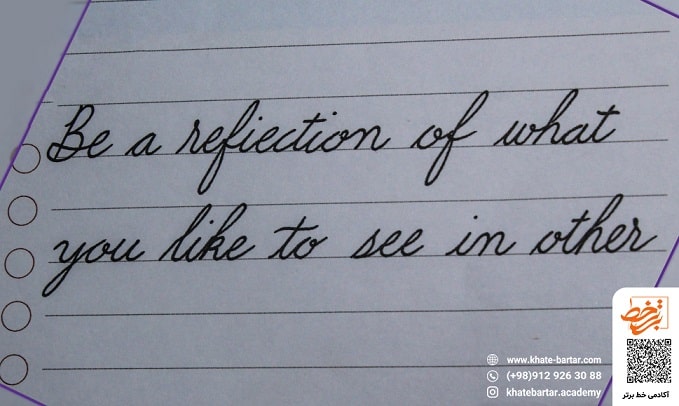 Be a refiection of what
you like to see in other
www.khate-bartar.com
(+98)912 926 30 88
khatebartar.academy
خط برتر
آکادمی خط برتر